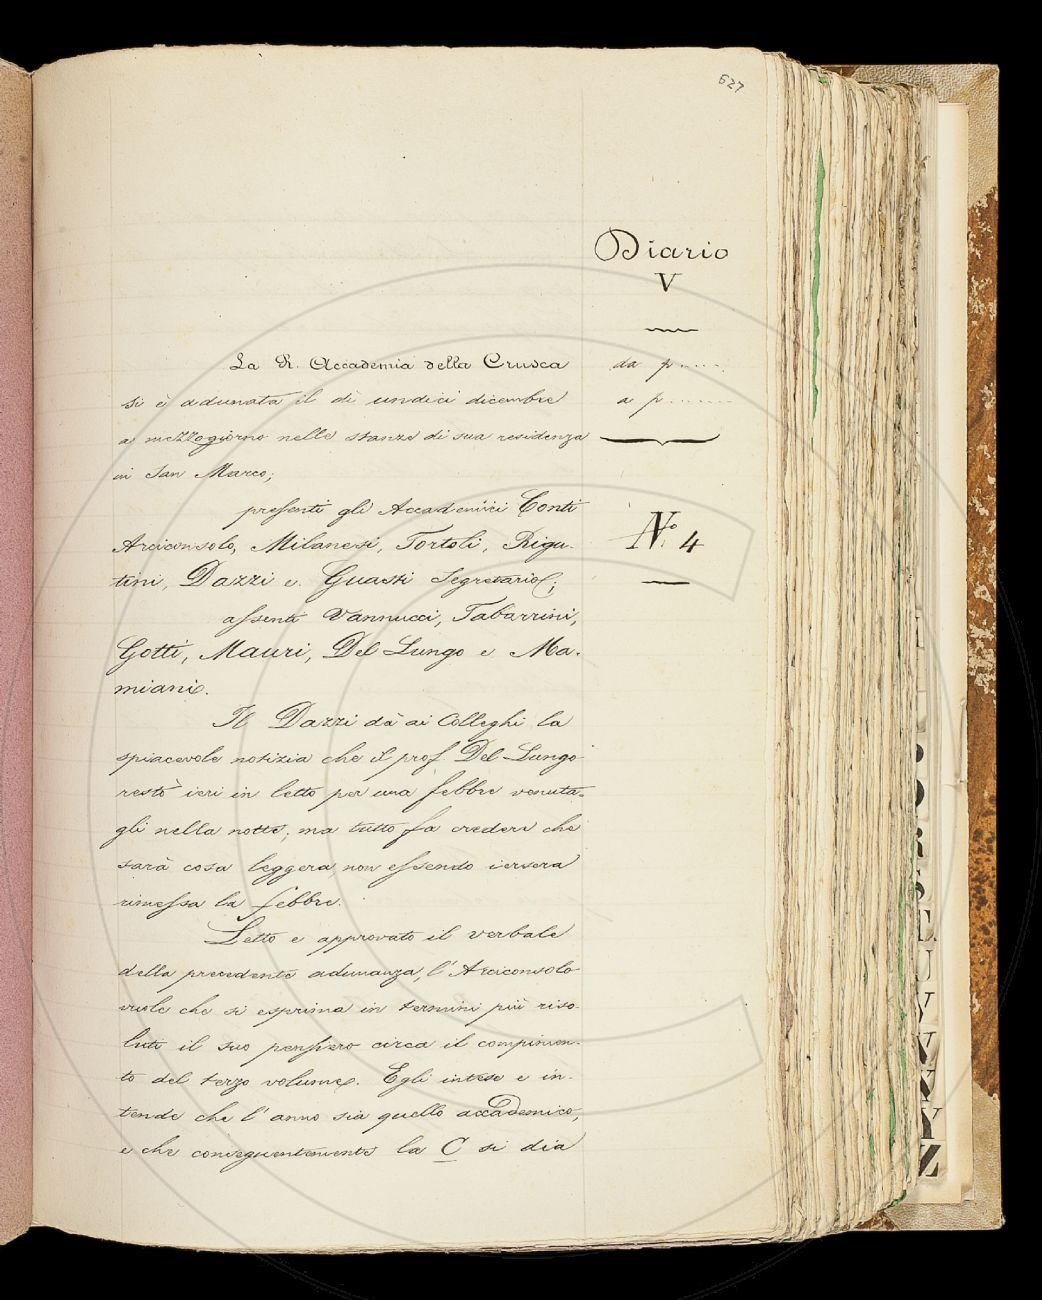 627
Diario
V
da p......
a p.......
N.º 4
La R. Accademia della Crusca
si è adunata il dì undici dicembre
a mezzogiorno nelle stanze di sua residenza
in San Marco;
presenti gli Accademici Conti
Arciconsolo, Milanesi, Tortoli, Rigu-
tini, Dazzi e Guasti Segretario;
assenti Vannucci, Tabarrini,
Gotti, Mauri, Del Lungo e Ma-
miani.
Il Dazzi dà ai Colleghi la
spiacevole notizia che il prof. Del Lungo
restò ieri in letto per una febbre venuta-
gli nella notte; ma tutto fa credere che
sarà cosa leggera, non essendo iersera
rimessa la febbre.
Letto e approvato il verbale
della precedente adunanza, l'Arciconsolo
vuole che si esprima in termini più riso-
luti il suo pensiero circa il compimen-
to del terzo volume. Egli intese e in-
tende che l'anno sia quello accademico,
e che conseguentemente la C si dia
R
S
T
U
V
X
Y
Z